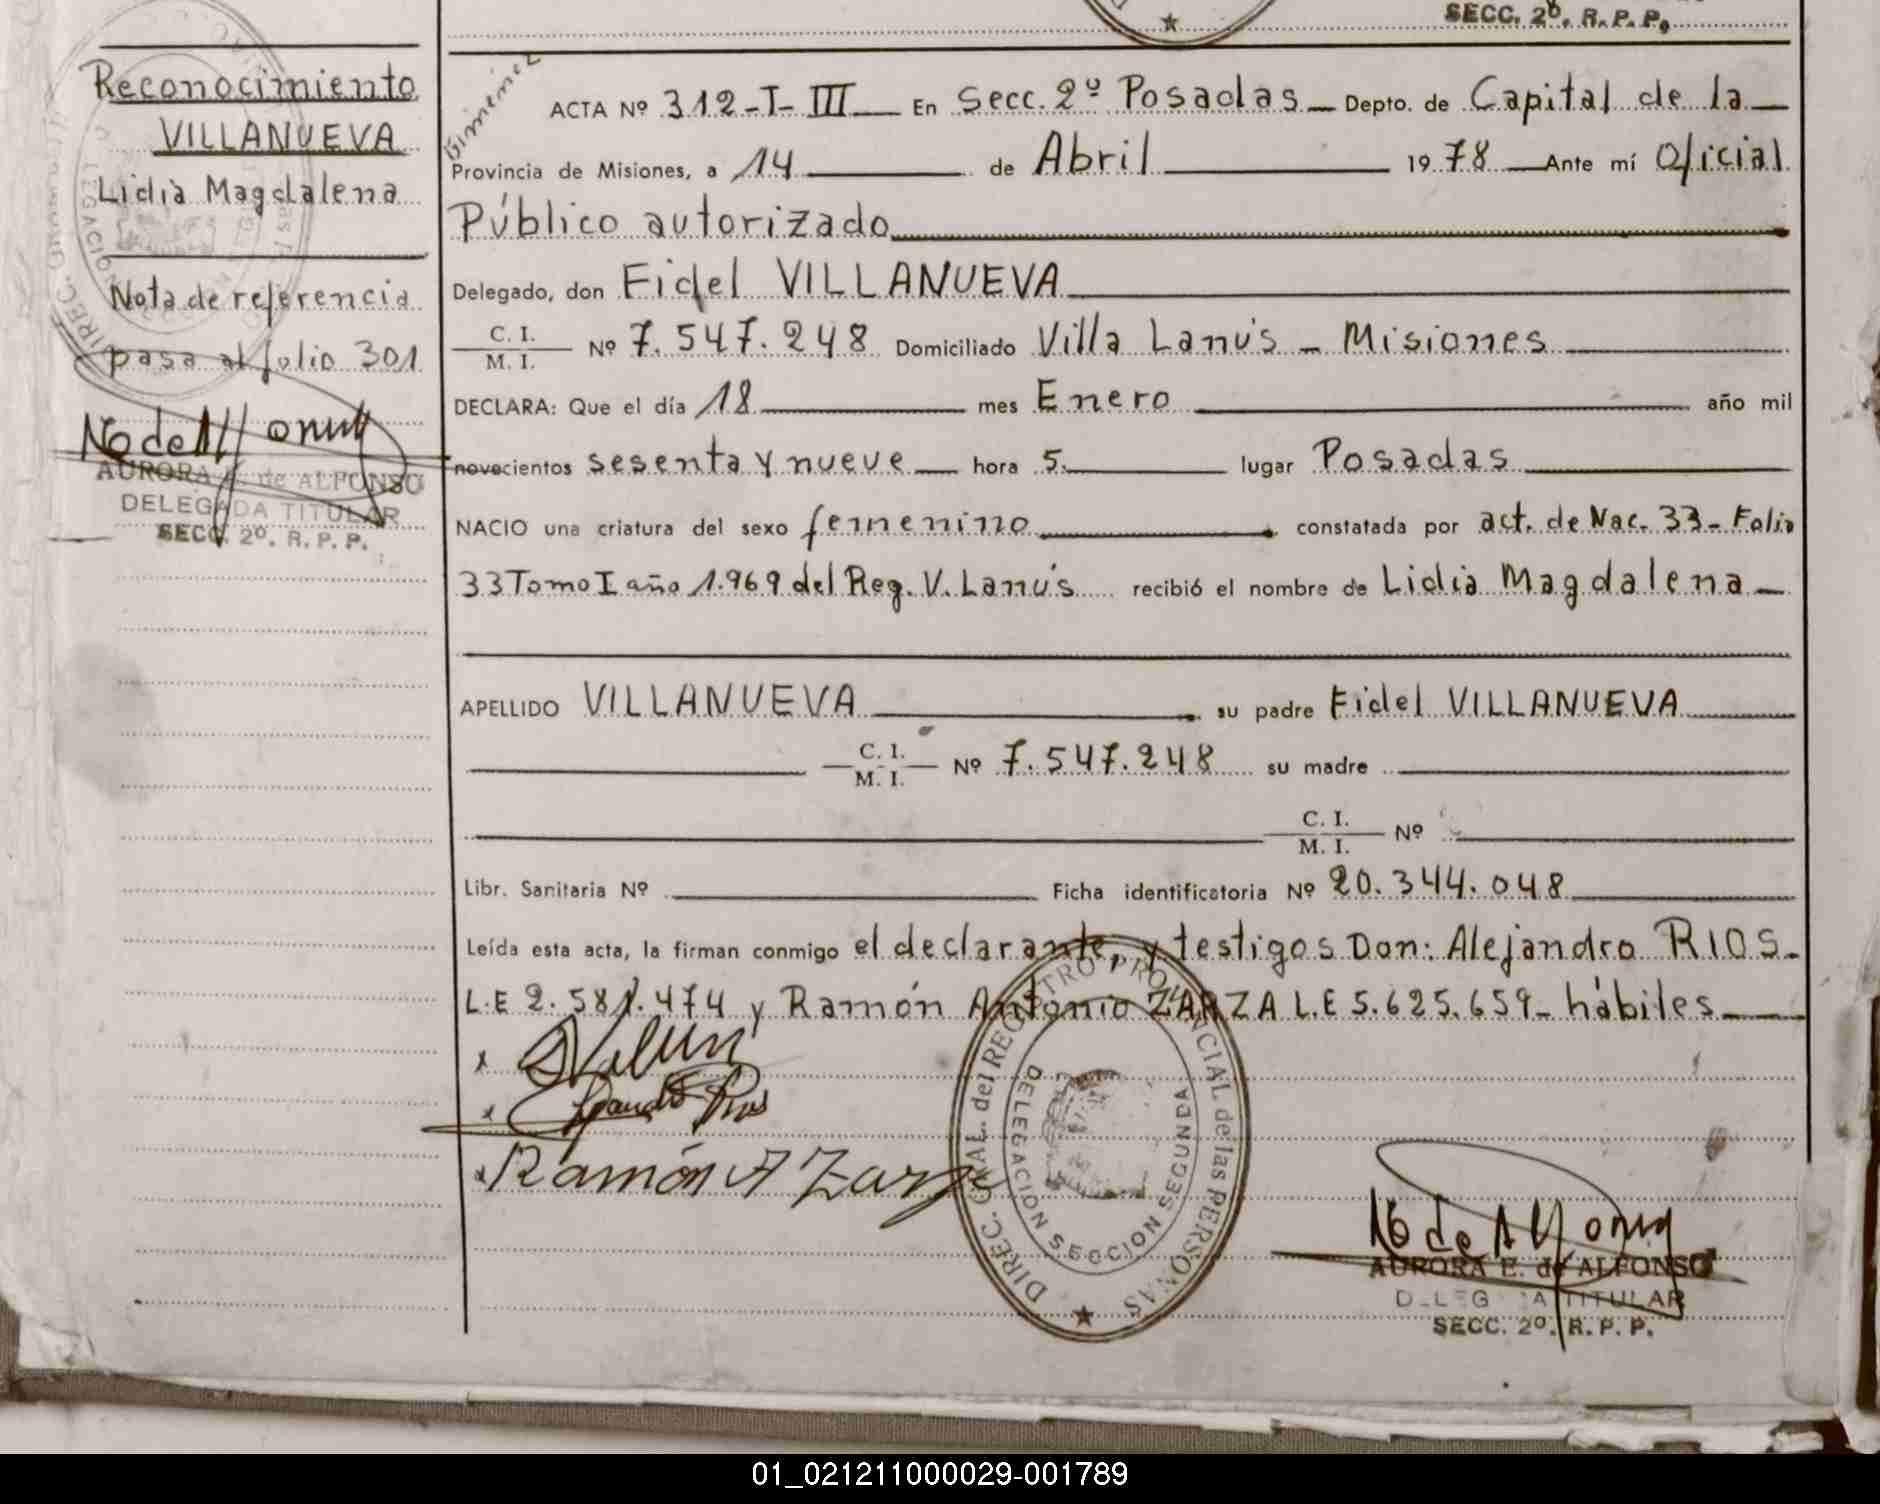 SECC. 2º. R. P. P.
Reconocimiento
VILLANUEVA
Lidia Magdalena
Nota de referencia
pasa al folio 301
AURORA E. de ALFONSO
DELEGADA TITULAR
SECC. 2º. R. P. P.
Giménez
ACTA Nº 312-T-III En Secc. 2º Posadas Depto. de Capital de la
Provincia de Misiones, a 14 de Abril 1978 Ante mí Oficial
Público autorizado
Delegado, don Fidel VILLANUEVA
C. I.
M. I. Nº 7.547.248 Domiciliado Villa Lanús - Misiones
DECLARA: Que el día 18 mes Enero año mil
novecientos sesenta y nueve hora 5. lugar Posadas
NACIO una criatura del sexo femenino constatada por act. de Nac. 33-Folio
33 Tomo I año 1.969 del Reg. V. Lanús recibió el nombre de Lidia Magdalena
APELLIDO VILLANUEVA su padre Fidel VILLANUEVA
C. I.
M. I. Nº 7.547.248 su madre
C. I.
M. I. Nº
Libr. Sanitaria Nº Ficha identificatoria Nº 20.344.048
Leída esta acta, la firman conmigo el declarante, y testigos Don: Alejandro RIOS.
L.E 2.581.474 y Ramón Antonio ZARZA L.E 5.625.659- hábiles
Ramón A Zarza
DIREC. GRAL. del REGISTRO PROVINCIAL de las PERSONAS
DELEGACION SECCION SEGUNDA
AURORA E. de ALFONSO
DELEGADA TITULAR
SECC. 2º. R. P. P.
01_021211000029-001789